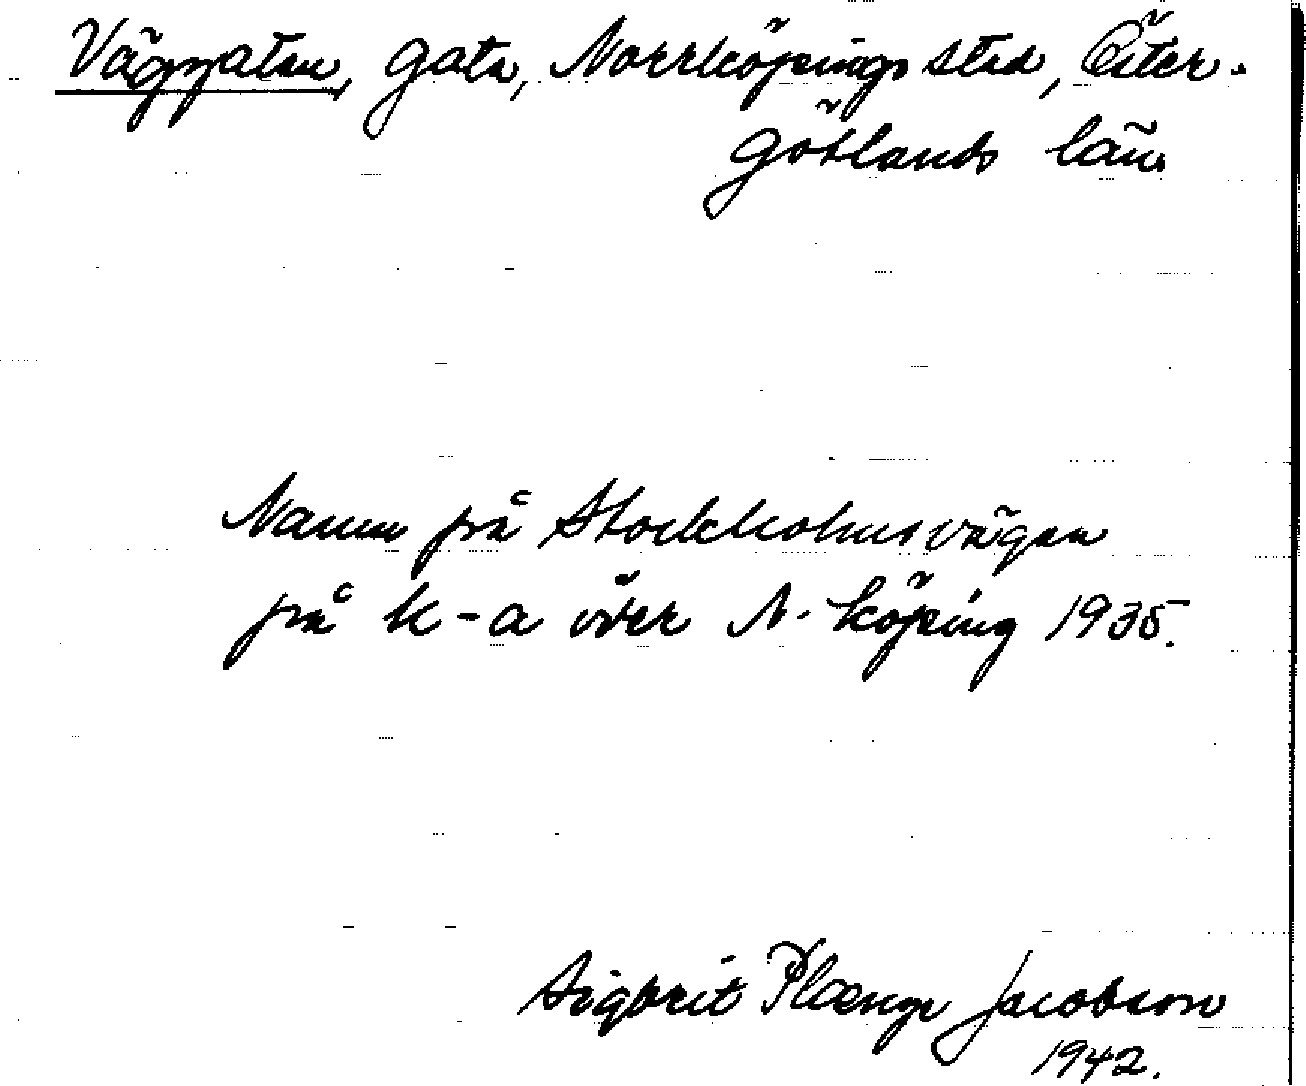 Väggatan, gata, Norrköpings stad, Öster-
götlands län.
Namn på Stockholmsvägen
på k-a över N-köping 1935.
Sigbrit Plænge Jacobson
1942.